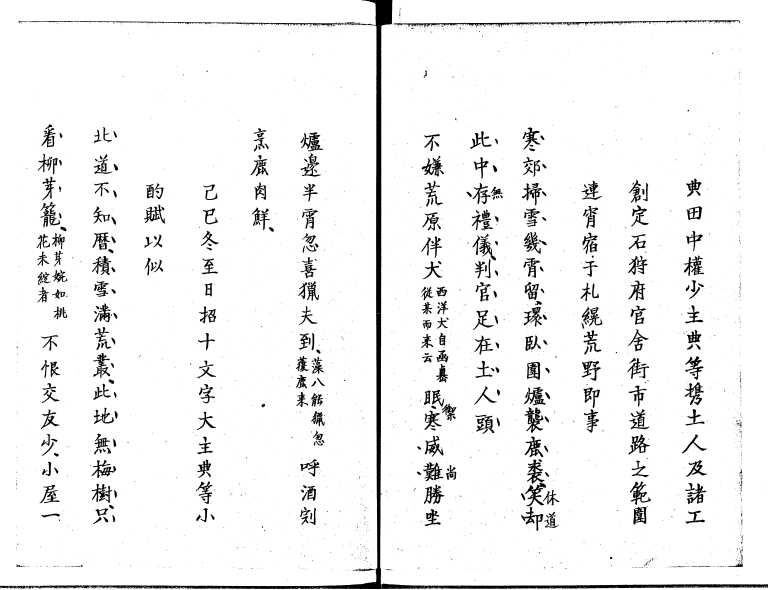 典田中權少主典等携土人及諸工
創定石狩府官舍街市道路之範圍
連宵宿于札縨荒野即事
寒郊掃雪幾宵留環臥圍爐襲鹿裘笑却
休道
此中存禮儀判官足在土人頭
無
不嫌荒原伴犬
西洋犬自函
從某而来云
眠寒威難勝坐
禦
尚
爐邊半霄忽喜獵夫到
藻八
獵忽
獲鹿来
呼酒割
烹鹿肉鮮
己巳冬至日招十文字大主典等小
酌賦以似
北道不知曆積雪滿荒叢此地無梅樹只
看柳芽籠
柳芽婉如桃
花未綻者
不恨交友少小屋一